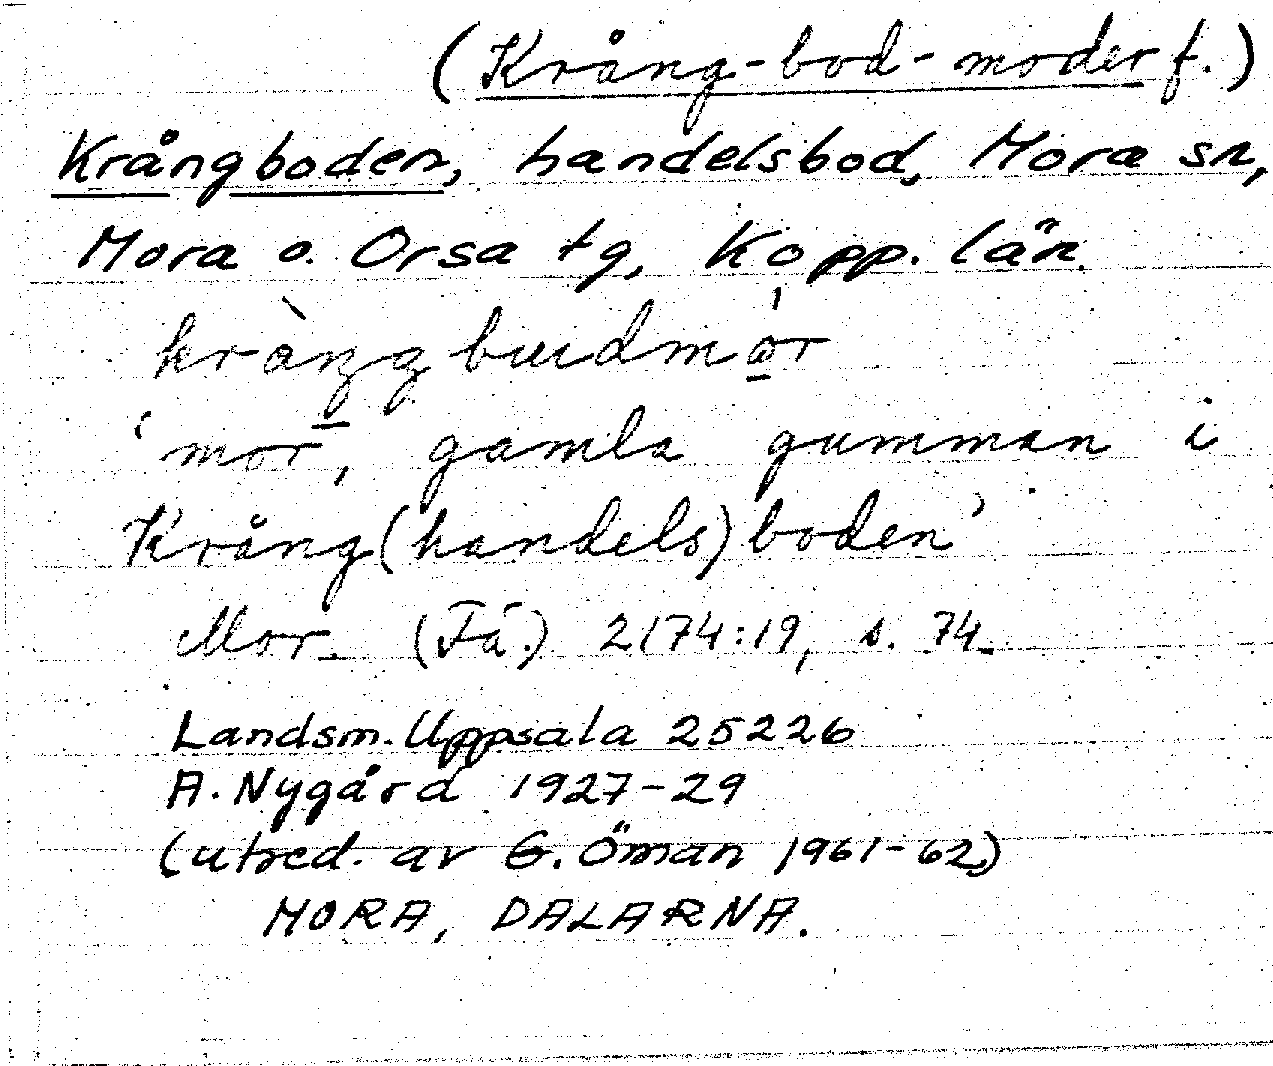 (Krång-bod-moder f.)
Krångboden, handelsbod, Mora sn,
Mora o. Orsa tg, Kopp. län.
kràŋgbudmór
'mor, gamla gumman i
Krång(handels)boden'
Mor. (Fä.) 2174:19, s. 74.
Landsm. Uppsala 25226
A. Nygård 1927-29
(utred. av G. Öman 1961-62)
MORA, DALARNA.